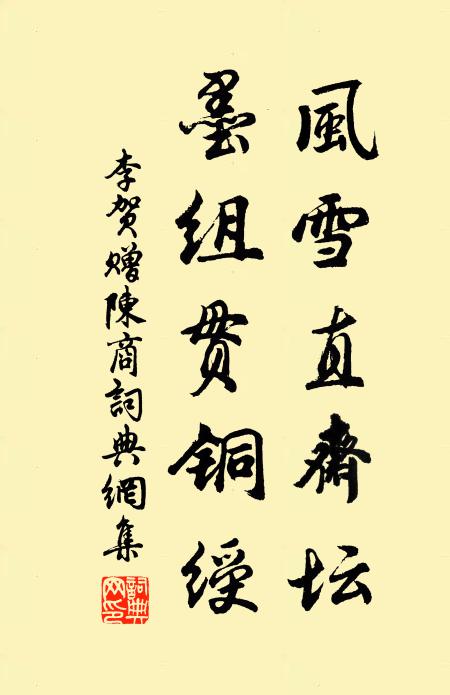 風雪直齋坛
墨组贯铜绶
李贺赠陳商詞典網集
詞典网印